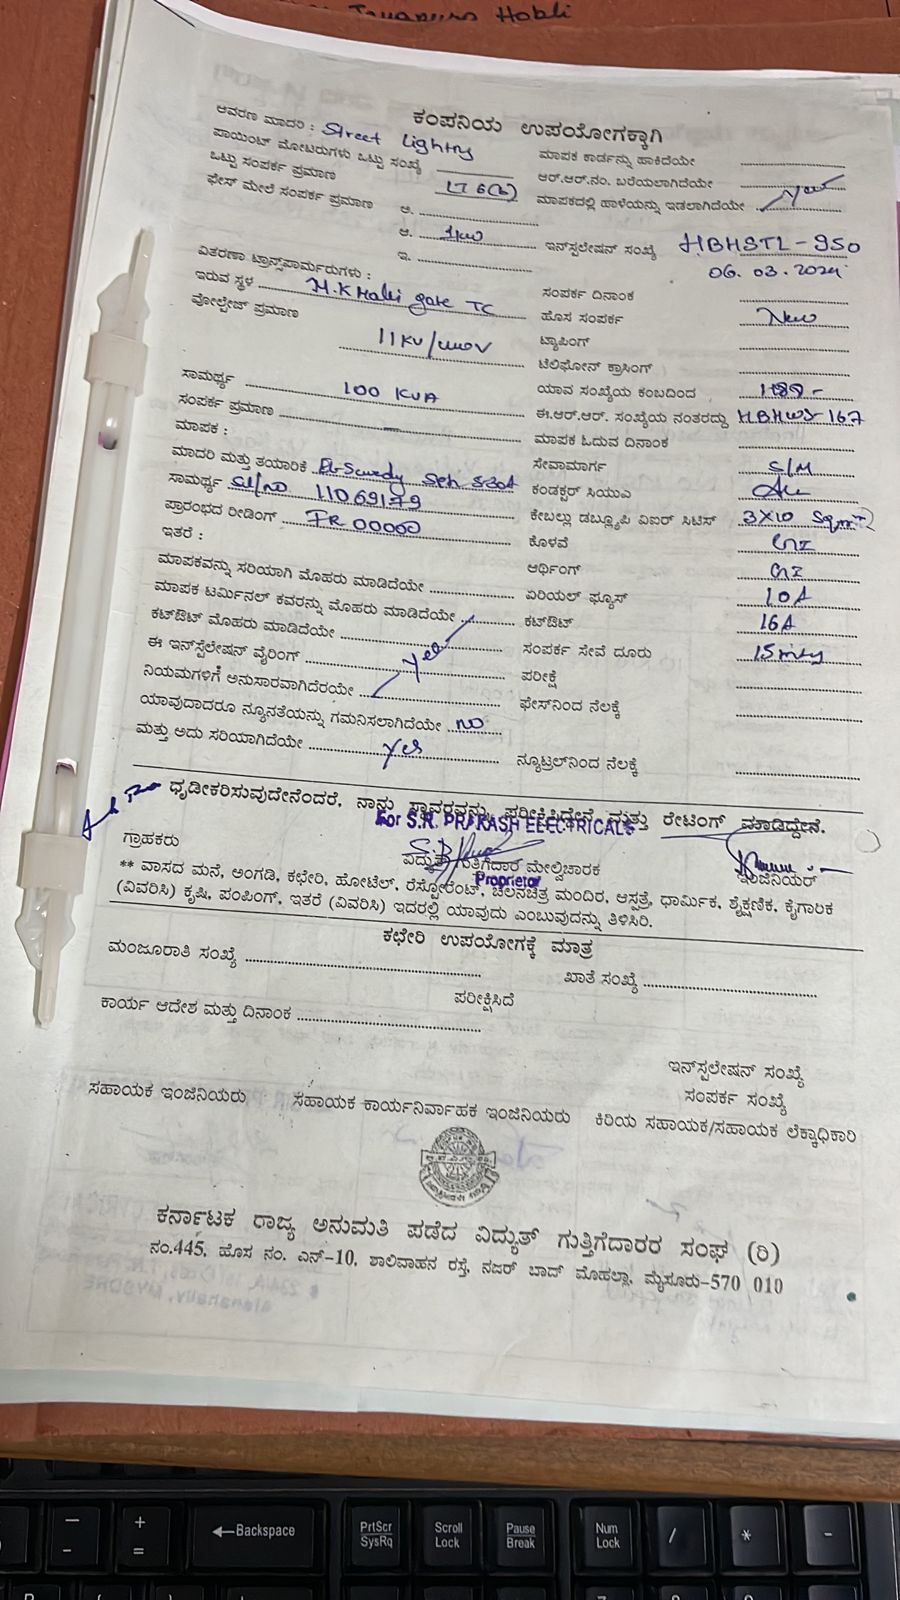 Hobli
ಕಂಪನಿಯ ಉಪಯೋಗಕ್ಕಾಗಿ
ಆವರಣ ಮಾದರಿ : Street Lighting
ಮಾಪಕ ಕಾರ್ಡನ್ನು ಹಾಕಿದೆಯೇ
ಪಾಯಿಂಟ್ ಮೋಟರುಗಳು ಒಟ್ಟು ಸಂಖ್ಯೆ
ಆರ್.ಆರ್.ನಂ. ಬರೆಯಲಾಗಿದೆಯೇ
ಒಟ್ಟು ಸಂಪರ್ಕ ಪ್ರಮಾಣ LT 6(b)
ಮಾಪಕದಲ್ಲಿ ಹಾಳೆಯನ್ನು ಇಡಲಾಗಿದೆಯೇ
ಫೇಸ್ ಮೇಲೆ ಸಂಪರ್ಕ ಪ್ರಮಾಣ ಅ.
ಆ. 1kw
ಇನ್‌ಸ್ಪಲೇಷನ್ ಸಂಖ್ಯೆ HBHSTL-950
ಇ.
06.03.2024
ವಿತರಣಾ ಟ್ರಾನ್ಸ್‌ಫಾರ್ಮರುಗಳು :
ಇರುವ ಸ್ಥಳ M.K Halli gate TC
ಸಂಪರ್ಕ ದಿನಾಂಕ
ವೋಲ್ಟೇಜ್ ಪ್ರಮಾಣ
ಹೊಸ ಸಂಪರ್ಕ New
11KV/
ಟ್ಯಾಪಿಂಗ್
ಟೆಲಿಫೋನ್ ಕ್ರಾಸಿಂಗ್
ಸಾಮರ್ಥ್ಯ 100 KVA
ಯಾವ ಸಂಖ್ಯೆಯ ಕಂಬದಿಂದ
ಸಂಪರ್ಕ ಪ್ರಮಾಣ
ಈ.ಆರ್.ಆರ್. ಸಂಖ್ಯೆಯ ನಂತರದ್ದು HBHWS 167
ಮಾಪಕ :
ಮಾಪಕ ಓದುವ ದಿನಾಂಕ
ಮಾದರಿ ಮತ್ತು ತಯಾರಿಕೆ
ಸೇವಾಮಾರ್ಗ S/M
ಸಾಮರ್ಥ್ಯ Sl/NO 11069179
ಕಂಡಕ್ಟರ್ ಸಿಯುಎ
ಪ್ರಾರಂಭದ ರೀಡಿಂಗ್ IR 00000
ಕೇಬಲ್ಲು ಡಬ್ಲ್ಯೂಪಿ ವಿಐರ್ ಸಿಟಿಸ್ 3X10 Sqmt
ಇತರೆ :
ಕೊಳವೆ GI
ಮಾಪಕವನ್ನು ಸರಿಯಾಗಿ ಮೊಹರು ಮಾಡಿದೆಯೇ
ಆರ್ಥಿಂಗ್ GI
ಮಾಪಕ ಟರ್ಮಿನಲ್ ಕವರನ್ನು ಮೊಹರು ಮಾಡಿದೆಯೇ
ಏರಿಯಲ್ ಫ್ಯೂಸ್ 10A
ಕಟ್‌ಔಟ್ ಮೊಹರು ಮಾಡಿದೆಯೇ
ಕಟ್‌ಔಟ್ 16A
ಈ ಇನ್‌ಸ್ಪೆಲೇಷನ್ ವೈರಿಂಗ್ yes
ಸಂಪರ್ಕ ಸೇವೆ ದೂರು
ನಿಯಮಗಳಿಗೆ ಅನುಸಾರವಾಗಿದೆರಯೇ
ಪರೀಕ್ಷೆ
ಯಾವುದಾದರೂ ನ್ಯೂನತೆಯನ್ನು ಗಮನಿಸಲಾಗಿದೆಯೇ NO
ಫೇಸ್‌ನಿಂದ ನೆಲಕ್ಕೆ
ಮತ್ತು ಅದು ಸರಿಯಾಗಿದೆಯೇ Yes
ನ್ಯೂಟ್ರಲ್‌ನಿಂದ ನೆಲಕ್ಕೆ
ಧೃಡೀಕರಿಸುವುದೇನೆಂದರೆ, ನಾನು ಸ್ಥಾವರವನ್ನು ಪರೀಕ್ಷಿಸಿದ್ದೇನೆ ಮತ್ತು ರೇಟಿಂಗ್ ಮಾಡಿದ್ದೇನೆ.
For S.R. PRAKASH ELECTRICALS
ಗ್ರಾಹಕರು
ವಿದ್ಯುತ್ ಗುತ್ತಿಗೆದಾರ ಮೇಲ್ವಿಚಾರಕ
ಇಂಜಿನಿಯರ್
Proprietor
** ವಾಸದ ಮನೆ, ಅಂಗಡಿ, ಕಛೇರಿ, ಹೋಟೆಲ್, ರೆಸ್ಪೋರೆಂಟ್, ಚಲನಚಿತ್ರ ಮಂದಿರ, ಆಸ್ಪತ್ರೆ, ಧಾರ್ಮಿಕ, ಶೈಕ್ಷಣಿಕ, ಕೈಗಾರಿಕ
(ವಿವರಿಸಿ) ಕೃಷಿ, ಪಂಪಿಂಗ್, ಇತರೆ (ವಿವರಿಸಿ) ಇದರಲ್ಲಿ ಯಾವುದು ಎಂಬುವುದನ್ನು ತಿಳಿಸಿರಿ.
ಕಛೇರಿ ಉಪಯೋಗಕ್ಕೆ ಮಾತ್ರ
ಮಂಜೂರಾತಿ ಸಂಖ್ಯೆ
ಖಾತೆ ಸಂಖ್ಯೆ
ಪರೀಕ್ಷಿಸಿದೆ
ಕಾರ್ಯ ಆದೇಶ ಮತ್ತು ದಿನಾಂಕ
ಇನ್‌ಸ್ಪಲೇಷನ್ ಸಂಖ್ಯೆ
ಸಂಪರ್ಕ ಸಂಖ್ಯೆ
ಸಹಾಯಕ ಇಂಜಿನಿಯರು
ಸಹಾಯಕ ಕಾರ್ಯನಿರ್ವಾಹಕ ಇಂಜಿನಿಯರು
ಕಿರಿಯ ಸಹಾಯಕ/ಸಹಾಯಕ ಲೆಕ್ಕಾಧಿಕಾರಿ
ಕರ್ನಾಟಕ ರಾಜ್ಯ ಅನುಮತಿ ಪಡೆದ ವಿದ್ಯುತ್ ಗುತ್ತಿಗೆದಾರರ ಸಂಘ (ರಿ)
ನಂ.445, ಹೊಸ ನಂ. ಎನ್-10, ಶಾಲಿವಾಹನ ರಸ್ತೆ, ನಜರ್ ಬಾದ್ ಮೊಹಲ್ಲಾ, ಮೈಸೂರು-570 010
Backspace
PrtScr
SysRq
Scroll
Lock
Pause
Break
Num
Lock